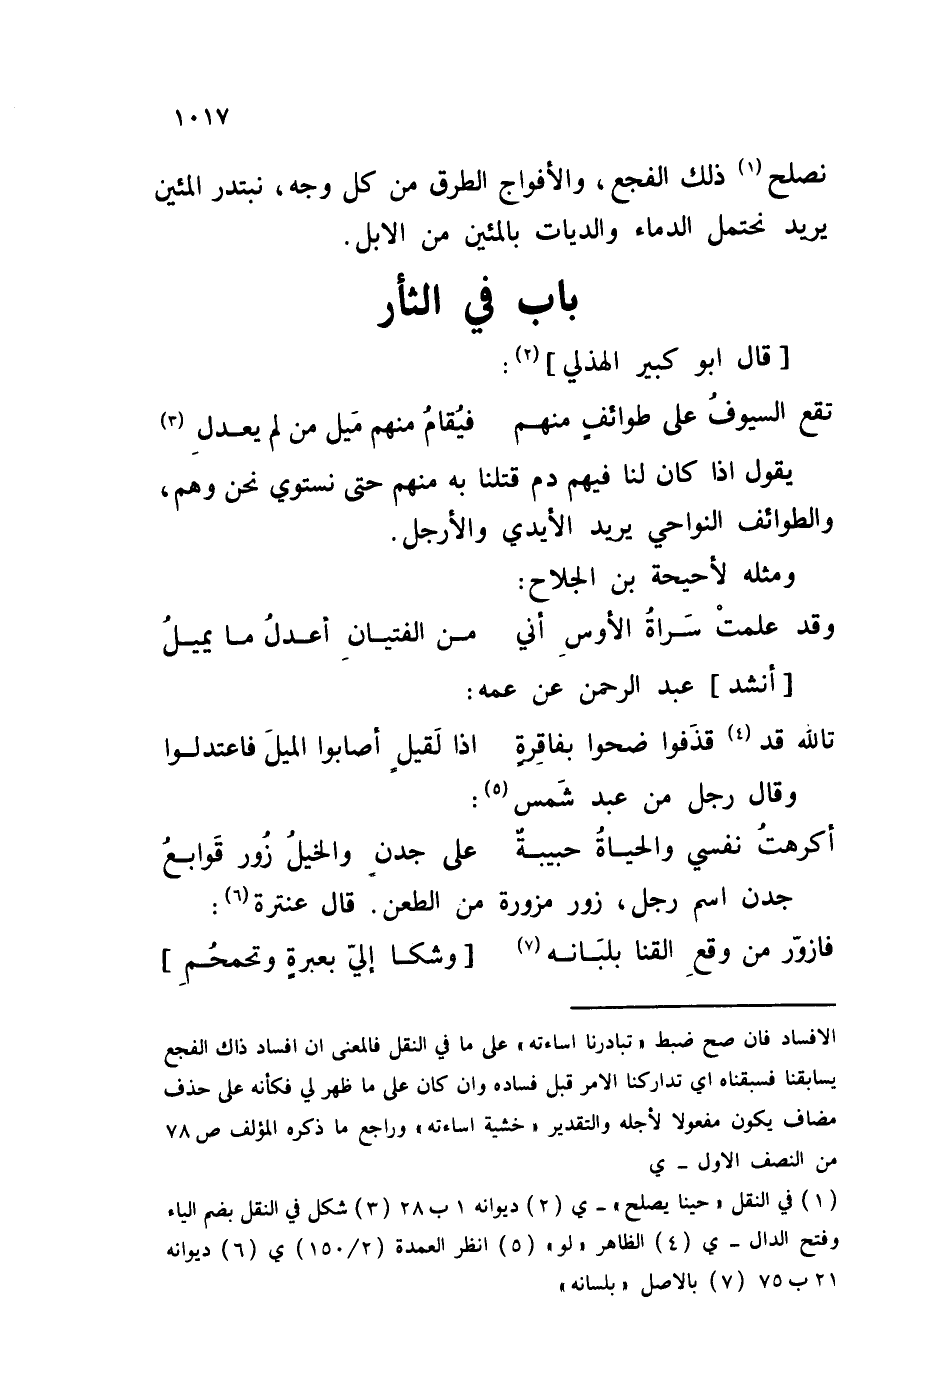 ١٠١٧
نصلح (١) ذلك الفجع، والأفواج الطرق من كل وجه، نبتدر المئين
يريد نحتمل الدماء والديات بالمئين من الابل.
باب في الثأر
[ قال ابو كبير الهذلي ] (٢) :
تقع السيوفُ على طوائفٍ منهـم فيُقامُ منهم مَيل من لم يعـدلِ (٣)
يقول اذا كان لنا فيهم دم قتلنا به منهم حتى نستوي نحن وهم،
والطوائف النواحي يريد الأيدي والأرجل.
ومثله لأحيحة بن الجلاح:
وقد علمتْ سَـراةُ الأوسِ أني مـن الفتيـانِ أعـدلُ مـا يميـلُ
[ أنشد ] عبد الرحمن عن عمه:
تالله قد (٤) قذَفوا ضحوا بفاقِرةٍ اذا لَقيلٍ أصابوا الميلَ فاعتدلـوا
وقال رجل من عبد شَمس (٥) :
أكرهتُ نفسي والحيـاةُ حبيبـةٌ على جدنٍ والخيلُ زُور قَوابـعُ
جدن اسم رجل، زور مزورة من الطعن. قال عنترة (٦) :
فازوّر من وقعِ القنا بلبَـانـه (٧) [ وشكـا إليّ بعبرةٍ وتحمحُـمِ ]
الافساد فان صح ضبط «تبادرنا اساءته» على ما في النقل فالمعنى ان افساد ذاك الفجع
يسابقنا فسبقناه اي تداركنا الامر قبل فساده وان كان على ما ظهر لي فكأنه على حذف
مضاف يكون مفعولا لأجله والتقدير «خشية اساءته» وراجع ما ذكره المؤلف ص ٧٨
من النصف الاول ـ ي
(١) في النقل «حينا يصلح» ـ ي (٢) ديوانه ١ ب ٢٨ (٣) شكل في النقل بضم الياء
وفتح الدال ـ ي (٤) الظاهر «لو» (٥) انظر العمدة (٢/١٥٠) ي (٦) ديوانه
٢١ ب ٧٥ (٧) بالاصل «بلسانه»